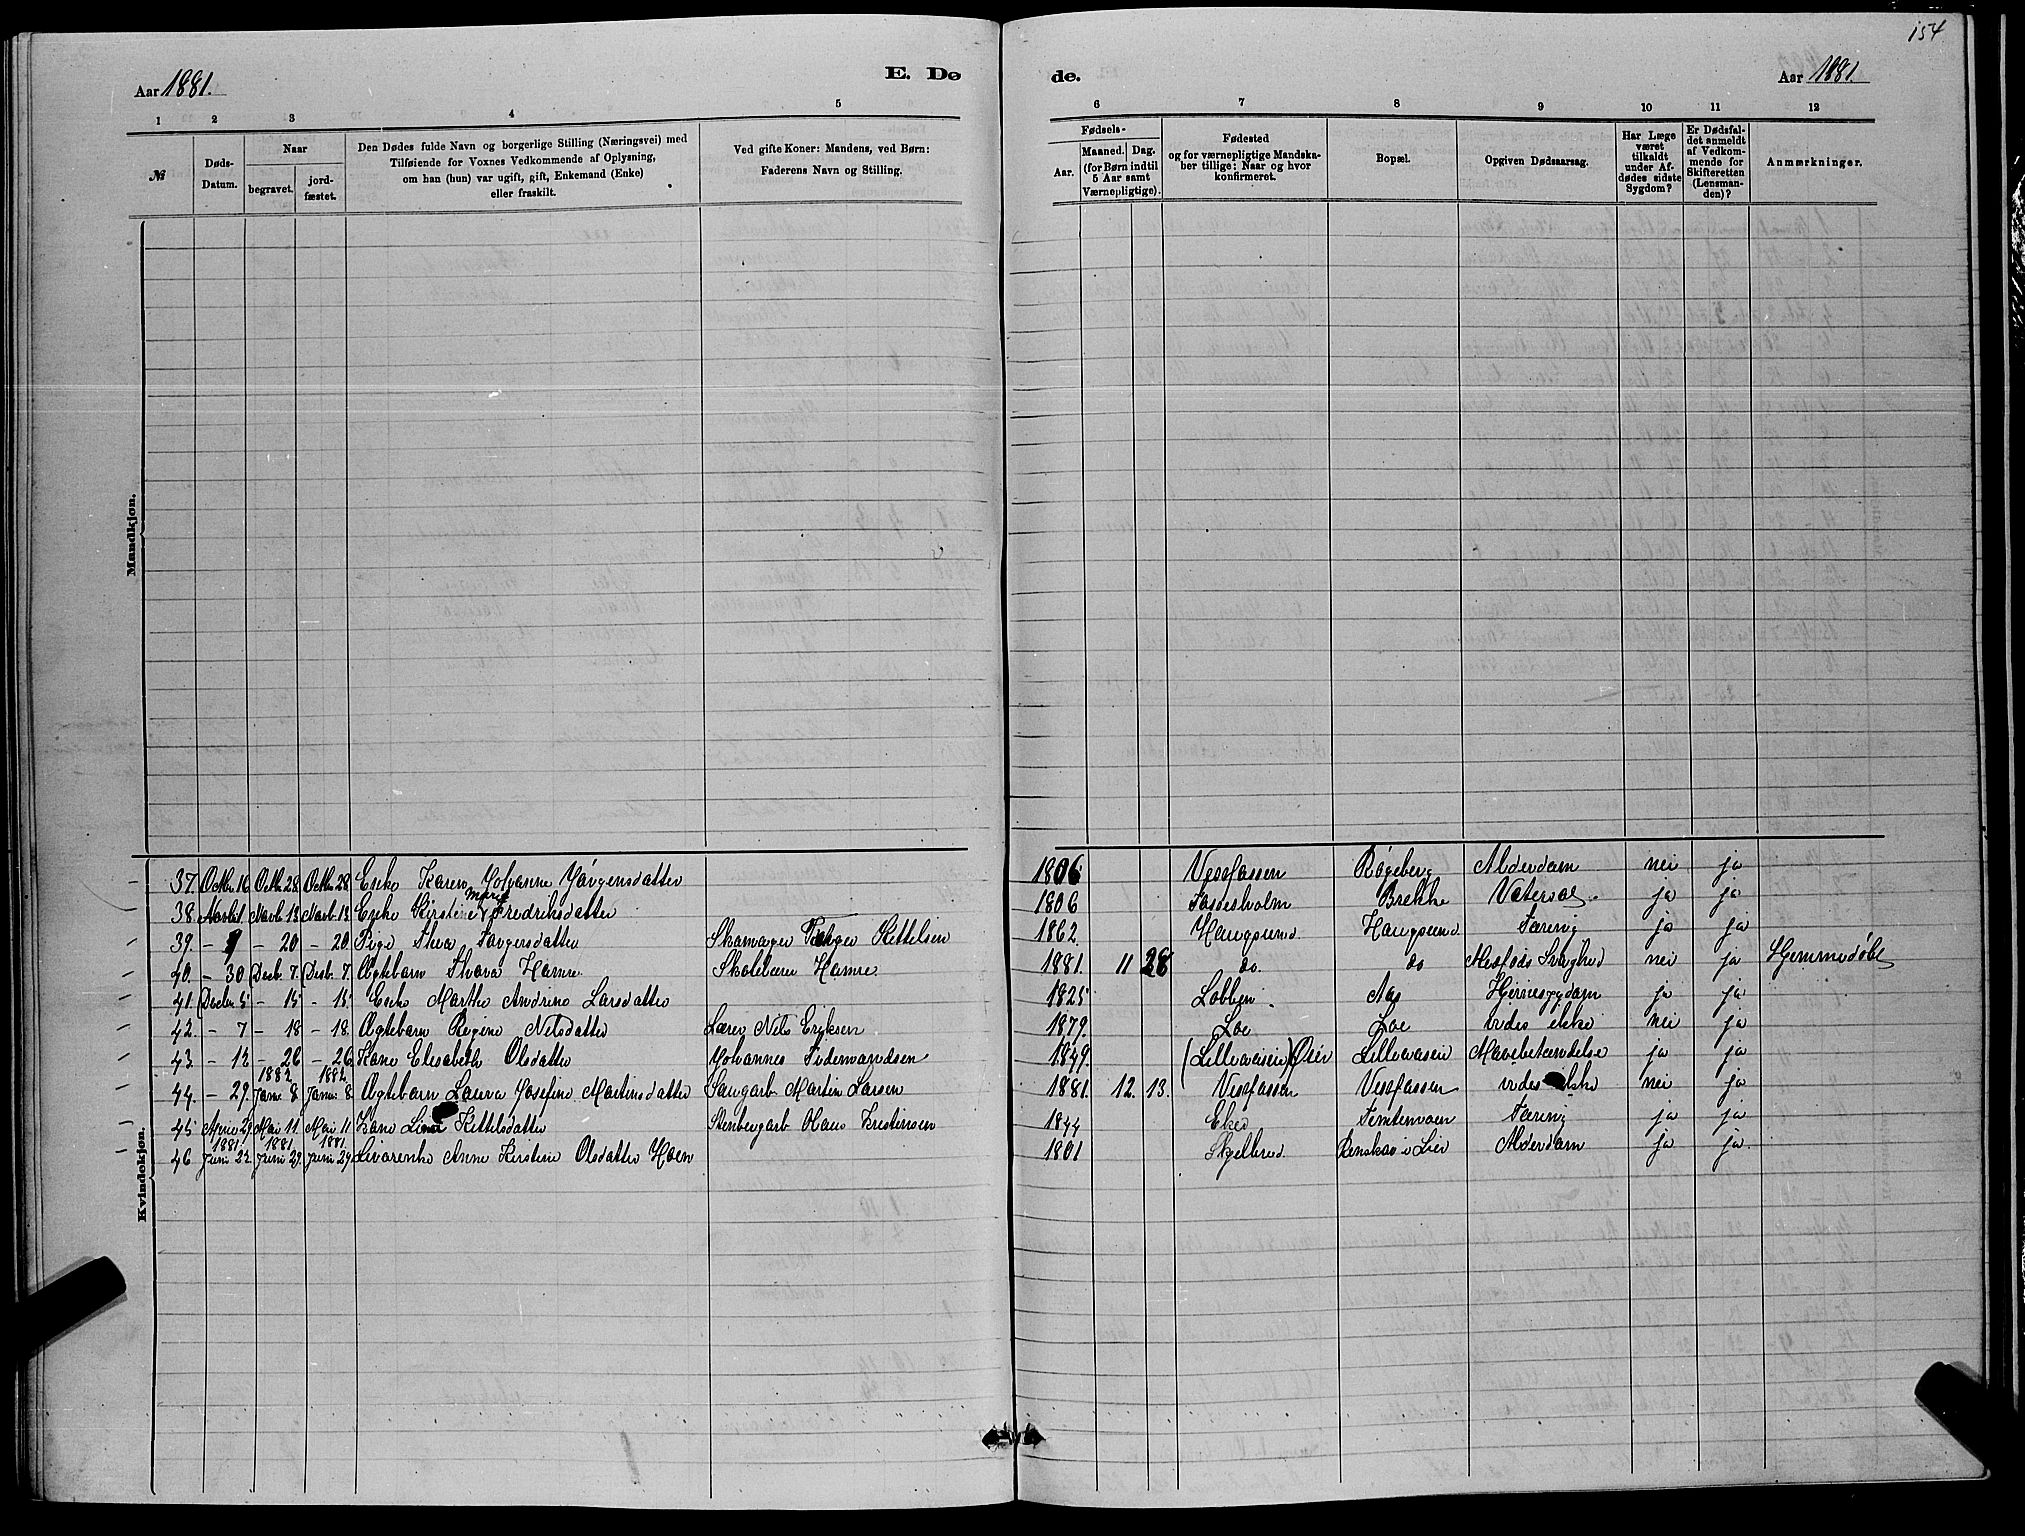 154
Aar 1881.
E. Døde.
Aar 1881.
1 2 3 4 5 6 7 8 9 10 11 12
№
Døds-Datum.
Naar
begravet.
jordfæstet.
Den Dødes fulde Navn og borgerlige Stilling (Næringsvei) med
Tilføiende for Voxnes Vedkommende af Oplysning,
om han (hun) var ugift, gift, Enkemand (Enke)
eller fraskilt.
Ved gifte Koner: Mandens, ved Børn:
Faderens Navn og Stilling.
Fødsels-
Aar.
Maaned. Dag.
(for Børn indtil
5 Aar samt
Værnepligtige).
Fødested
og for værnepligtige Mandskaber tillige: Naar og hvor
konfirmeret.
Bopæl.
Opgiven Dødsaarsag.
Har Læge
været
tilkaldt
under Afdødes sidste
Sygdom?
Er Dødsfaldet anmeldt
af Vedkommende for
Skifteretten
(Lensmanden)?
Anmærkninger.
Mandkjøn.
Kvindekjøn.
37. Octbr. 16 Octbr. 28 Octbr. 28 Enke Karen Johanne Jørgensdatter 1806 Vestfossen Røgeberg Alderdom nei ja
38. Novbr 1 Novbr. 13 Novbr. 13 Enke Kirstine Marie Fredriksdatter 1806 Brekke Vatersot ja ja
39. - 20 - 20. Pige Thea Torgersdatter Skomager Torger Kittelsen 1862 Haugsund. Haugsund. Tæring ja ja
40. - 30 Decbr. 7. Decbr. 7. Ægtebarn Thora Hamre Skolelærer Hamre 1881. 11 28 do. do Medfødt Svaghed nei ja Hjemmedøbt
41. Decbr 5 - 15 - 15. Enke Marthe Andrine Larsdatter 1825 Lobben Aas Hjernesygdom ja ja
42. - 7 - 18 - 18. Ægtebarn Regine Nilsdatter Lærer Nils Eriksen 1879. Loe Loe vides ikke nei ja
43. - 12 - 26 - 26. Kone Elisabeth Olsdatter Johannes Tidemandsen 1849. Mavebetændelse ja ja
44. - 29. 1882 Janu 8 1882 Janu 8 Ægtebarn Laura Josefine Martinsdatter Saugarb. Martin Larsen 1881. 12. 13. Vestfossen Vestfossen vides ikke nei ja
45 Mai 11 Mai 11 Kone Line Kittelsdatter Stenbergarb Hans Kristiansen 1844 Eker Tæring ja ja
46 1881 Juni 22 1881 Juni 29 1881. Juni 29 Anne Kirstine Olsdatter Hoen 1801 Skjelbred i Lier Alderdom ja ja